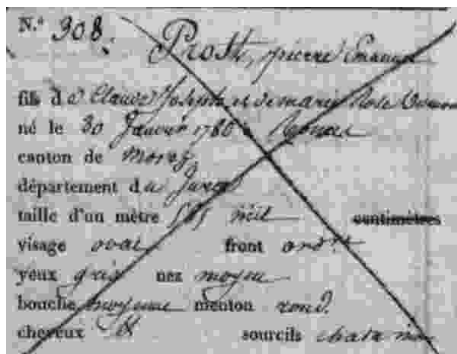 N.° 308.
Prost, pierre Emanuel
fils de Claude Joseph et de marie Rose
né le 30 Janvier 1786 à
canton de Morez
département du jura
taille d'un mètre 585 mill centimètres
visage oval front ord.re
yeux gris nez moyen
bouche moyenne menton rond.
cheveux & sourcils chatain